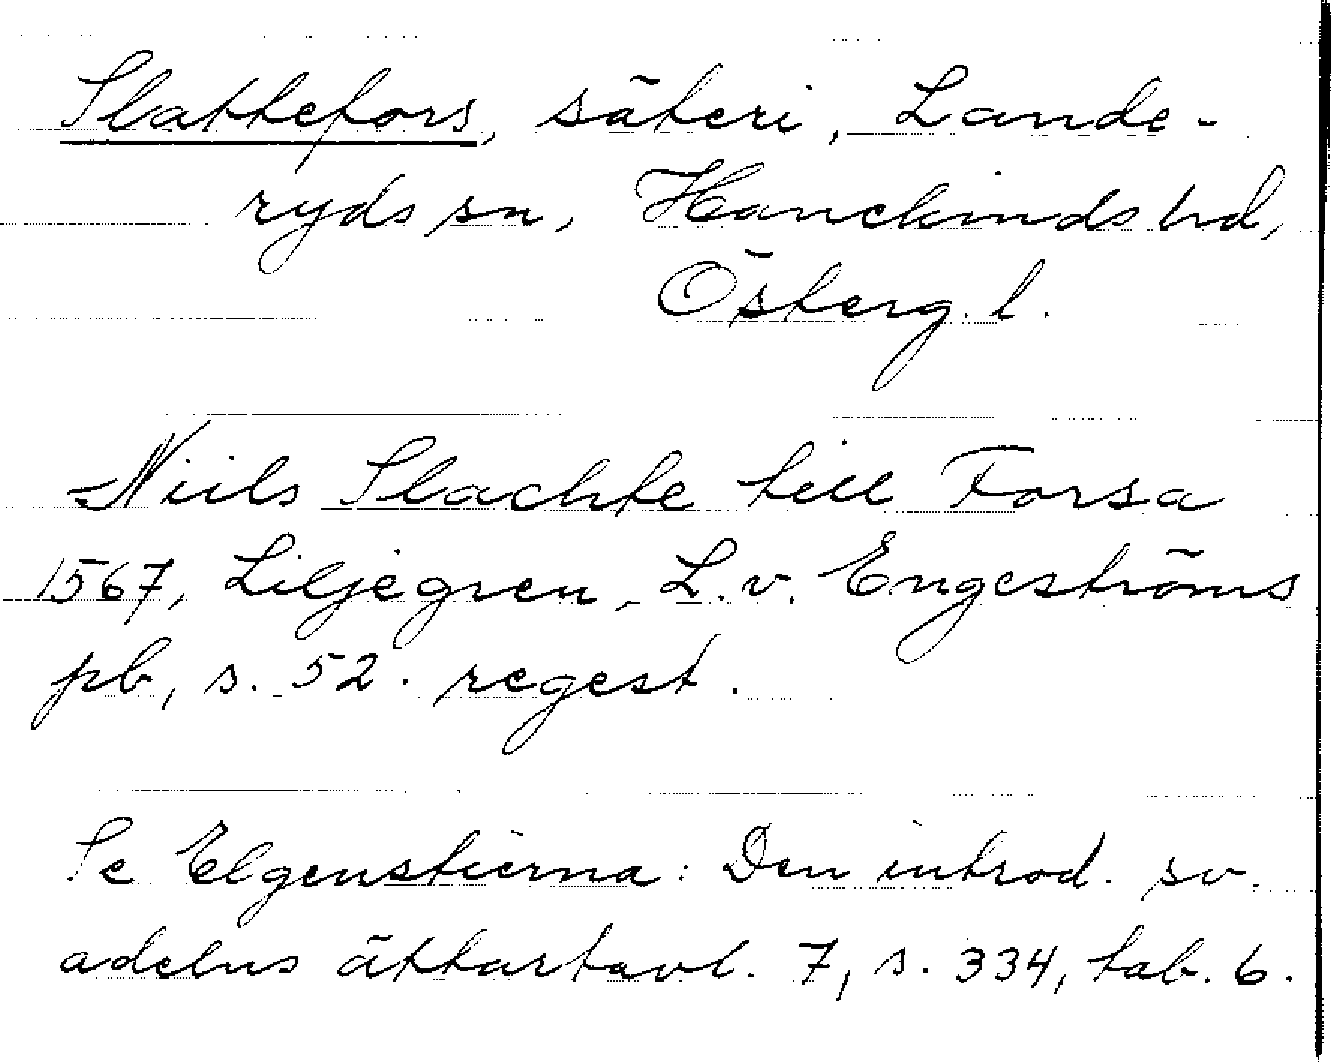 Slattefors, säteri, Lande-
ryds sn, Hanekinds hd,
Österg. l.
Niils Slachte till Forsa
1567, Liljegren, L. v. Engeströms
pb, s. 52. regest.
Se Elgenstierna: Den introd. sv.
adelns ättartavl. 7, s. 334, tab. 6.